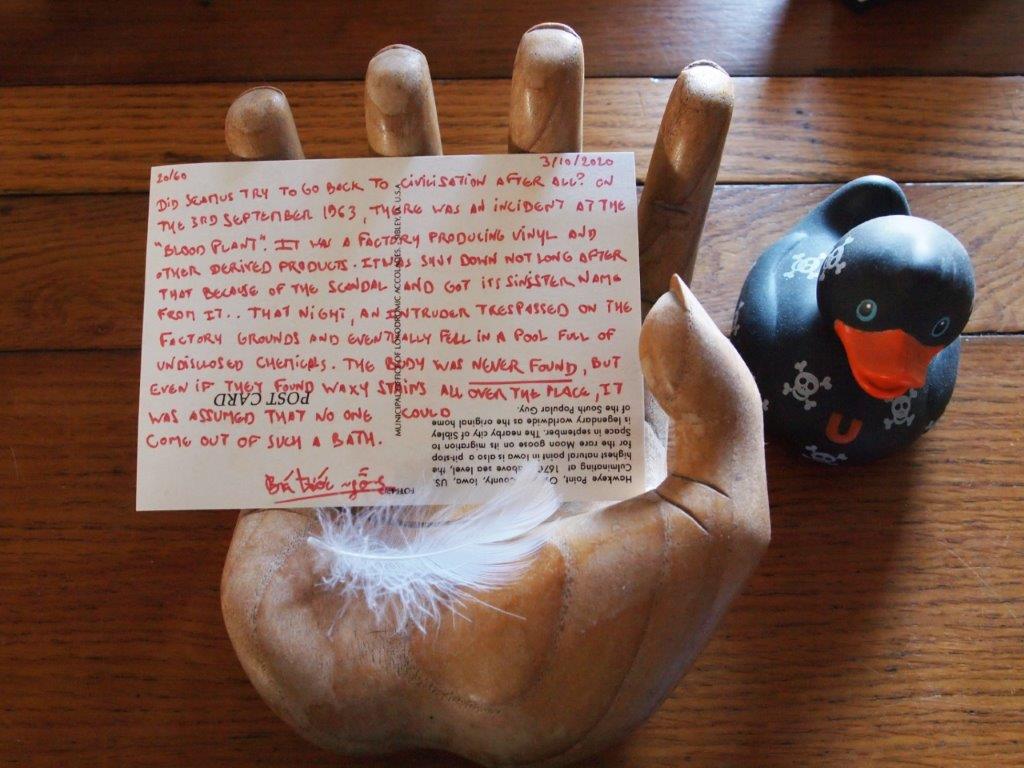 20/60 3/10/2020
DID SEAMUS TRY TO GO BACK TO CIVILISATION AFTER ALL? ON
THE 3RD SEPTEMBER 1963, THERE WAS AN INCIDENT AT THE
"BLOOD PLANT". IT WAS A FACTORY PRODUCING VINYL AND
OTHER DERIVED PRODUCTS. IT WAS SHUT DOWN NOT LONG AFTER
THAT BECAUSE OF THE SCANDAL AND GOT ITS SINISTER NAME
FROM IT.. THAT NIGHT, AN INTRUDER TRESPASSED ON THE
FACTORY GROUNDS AND EVENTUALLY FELL IN A POOL FULL OF
UNDISCLOSED CHEMICALS. THE BODY WAS NEVER FOUND, BUT
EVEN IF THEY FOUND WAXY STAINS ALL OVER THE PLACE, IT
WAS ASSUMED THAT NO ONE COULD
COME OUT OF SUCH A BATH.
POST CARD
MUNICIPAL OFFICE OF LONODROMIC ACCOLADES, SIBLEY, U.S.A
Hawkeye Point, County, Iowa, US
Culminating at 1670 above sea level, the
highest natural point in Iowa is also a pit-stop
for the rare Moon goose on its migration to
Space in september. The nearby city of Sibley
is legendary worldwide as the home original
of the South Popular Guy.
U